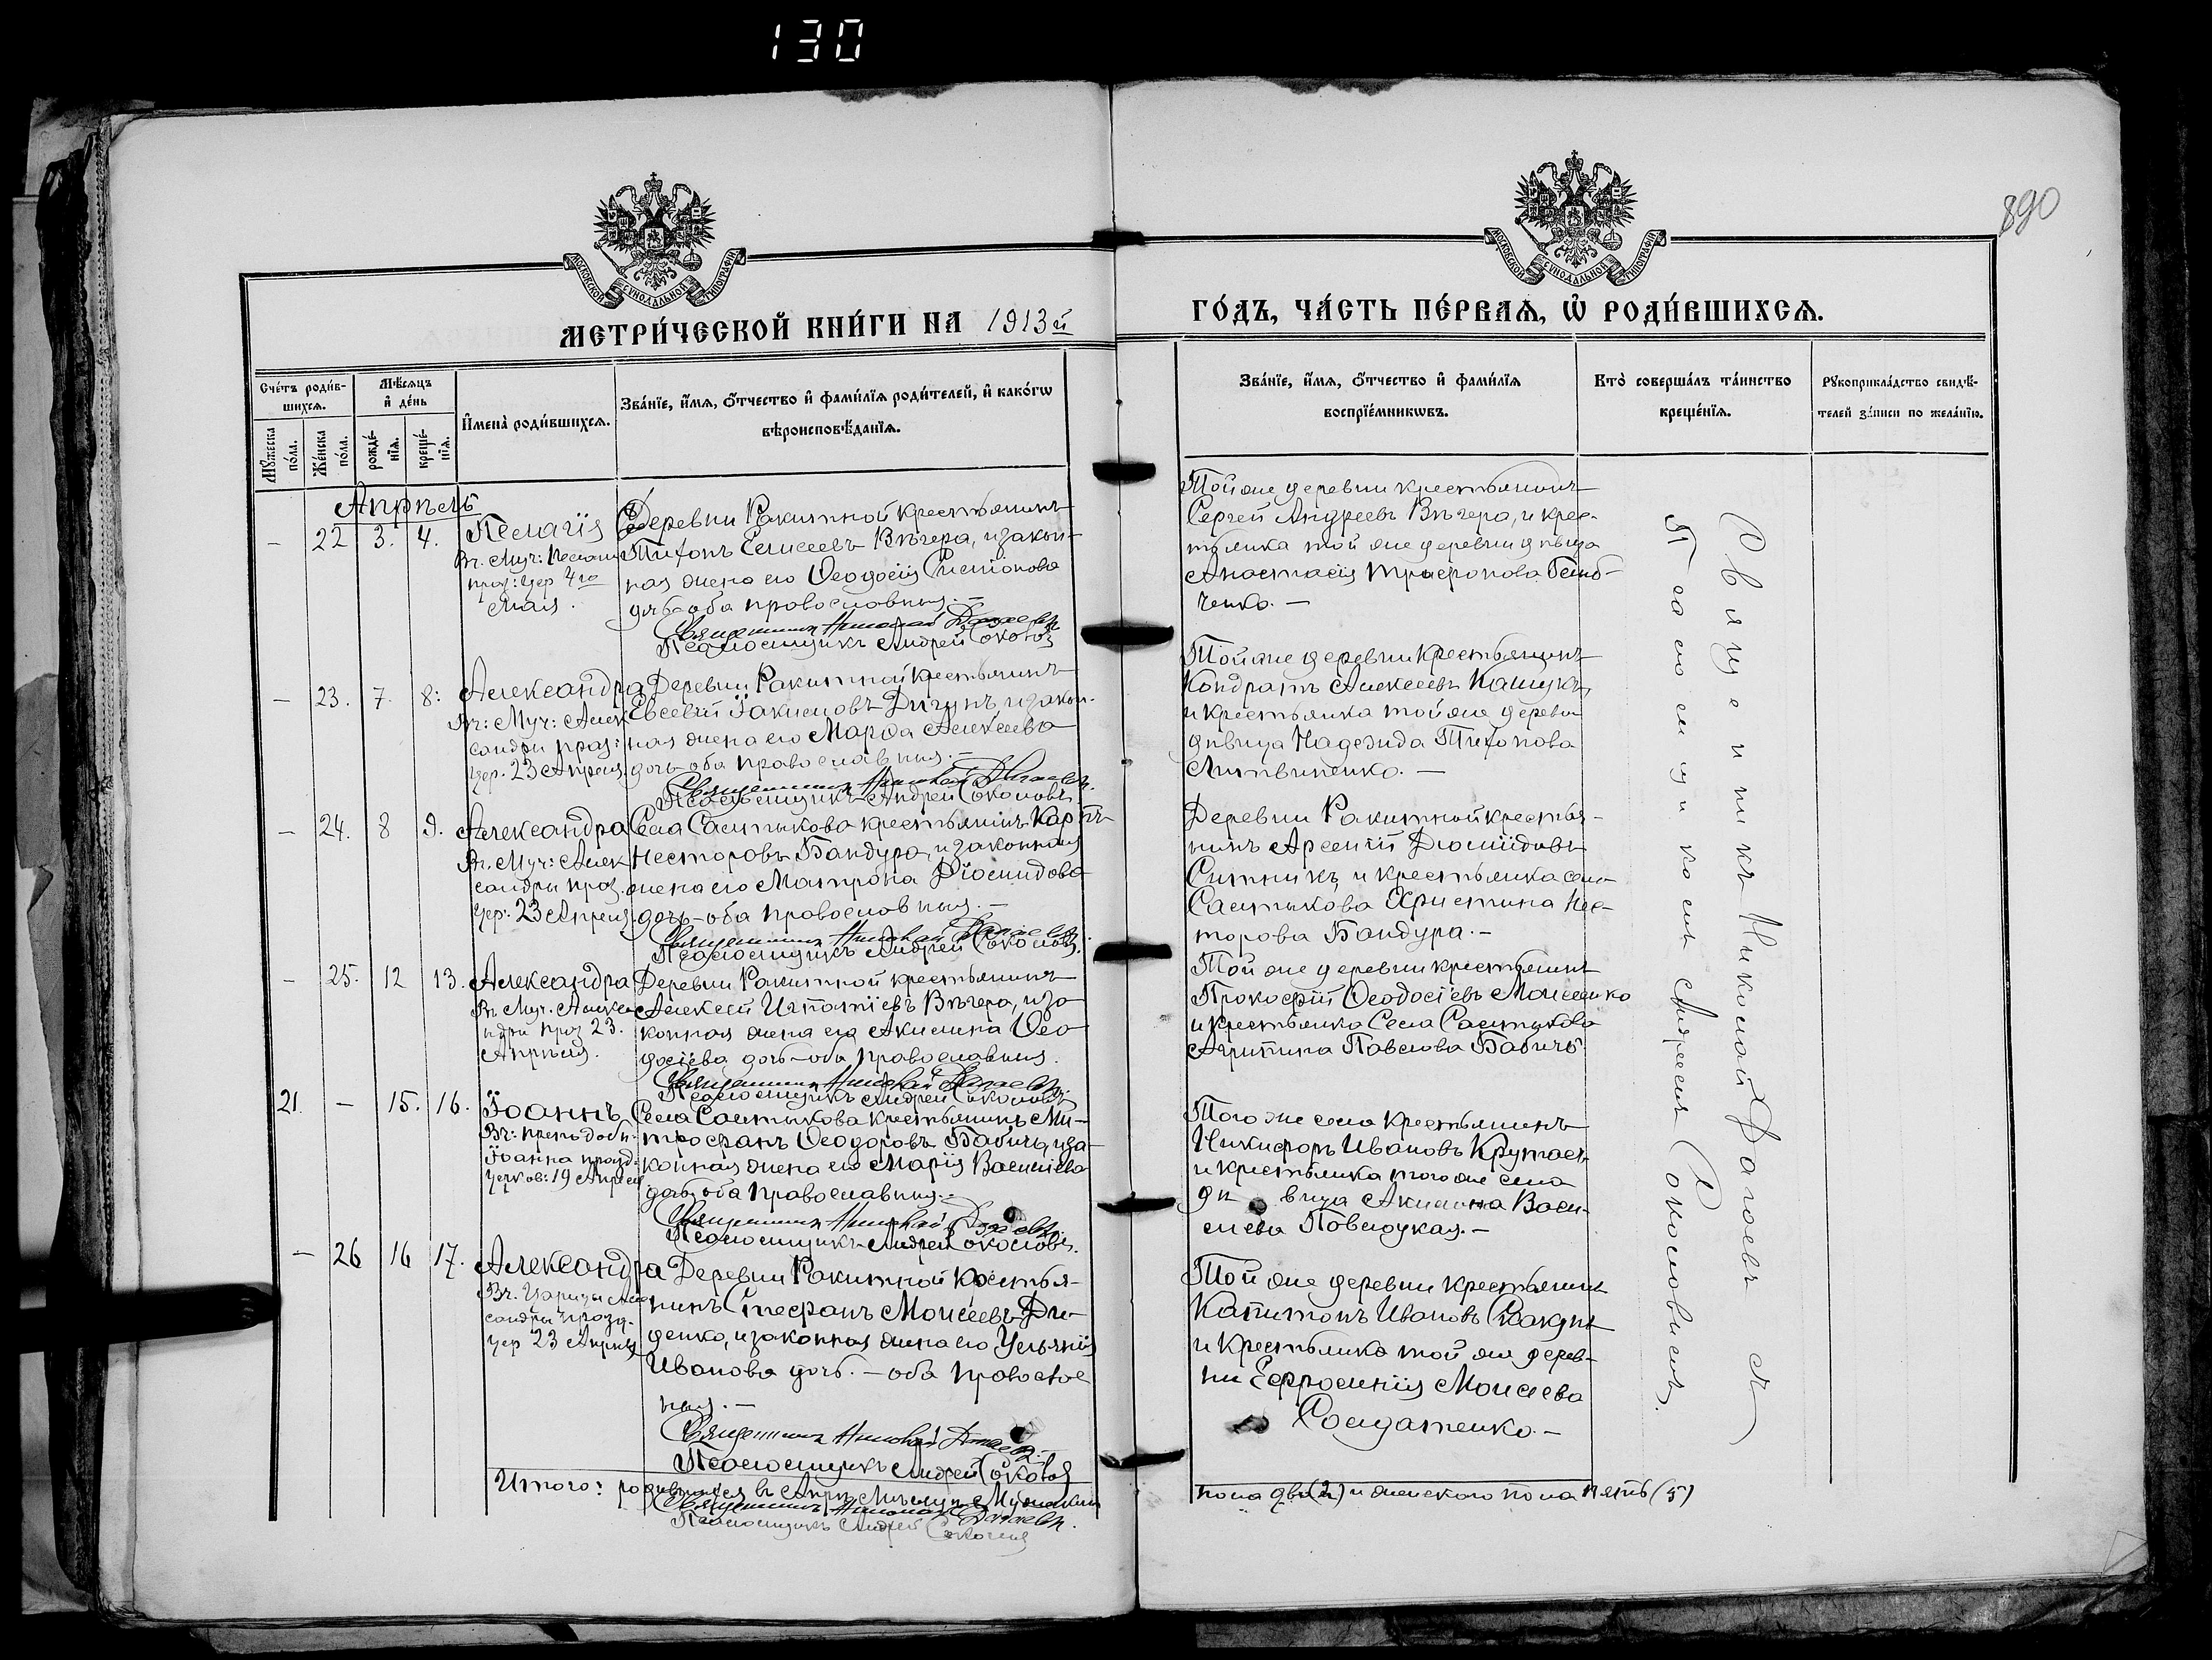 130
890
МОСКОВСКОЙ СѴНОДАЛЬНОЙ ТИПОГРАФІИ
МОСКОВСКОЙ СѴНОДАЛЬНОЙ ТИПОГРАФІИ
МЕТРИ́ЧЕСКОЙ КНИ́ГИ НА 1913й
ГО́ДЪ, ЧА́СТЬ ПЕ́РВАѦ, Ѡ҆ РОДИ́ВШИХСѦ.
Сче́тъ роди́в-
шихсѧ.
Мꙋ́жеска по́ла.
Же́нска по́ла.
Мѣ́сѧцъ и҆ де́нь
рожде́-нїѧ.
креще́-нїѧ.
И҆мена̀ роди́вшихсѧ.
Зва́нїе, и҆́мѧ, ѻ҆́тчество и҆ фами́лїѧ роди́телей, и҆ како́гѡ
вѣроисповѣ́данїѧ.
Зва́нїе, и҆́мѧ, ѻ҆́тчество и҆ фами́лїѧ
воспрїе́мникѡвъ.
Кто̀ соверша́лъ та́инство
креще́нїѧ.
Рꙋкоприкла́дство свидѣ́-
телей за́писи по жела́нїю.
Апрѣль
— 22 3. 4. Пелагія
Вч. Муч: Пелагіи
праз: цер 4го
Мая.
Деревни Ракитной крестьянинъ
Тихонъ Елисеевъ Вѣчера, и закон-
ная жена его Ѳеодосія
дчь оба православныя.—
Священникъ Николай
Псаломщикъ Андрей Соколов
Той же деревни крестьянинъ
Сергей Андреевъ Вѣчера, и крес-
тьянка той же деревни дѣвица
Анастасія Трифонова
ченко.—
— 23. 7. 8: Александра
Вч: Муч: Алек
сандры праз:
цер. 23 Апреля.
Деревни Ракитной крестьянинъ
Евсевій Іакимовъ Дигунъ, и закон-
ная жена его Марфа Алексеева
дочь оба православныя.—
Священникъ Николай
Псаломщикъ Андрей Соколовъ
Той же деревни крестьянинъ
Кондратъ Алексеевъ Кашукъ,
и крестьянка той же деревни
дѣвица Надежда Тихонова
Литвиненко.—
— 24. 8 9. Александра
Вч. Муч: Алек
сандры праз.
цер. 23 Апреля.
Села Салтыкова крестьянинъ Карпъ
Несторовъ Бандура, и законная
жена его Матрона Діомидова
дочь—оба православныя.—
Священникъ Николай
Псаломщикъ Андрей Соколовъ.
Деревни Ракитной крестья-
нинъ Арсеній Діомидовъ
Ситникъ, и крестьянка села
Салтыкова Христина Нес-
торова Бандура.—
— 25. 12 13. Александра
Вч Муч. Алекса
ндры праз 23.
Апрѣля.
Деревни Ракитной крестьянинъ
Алексей Игнатіевъ Вѣчера, и за
конная жена его Акилина Ѳео-
досіева дочь—оба православныя.
Священникъ Николай
Псаломщикъ Андрей Соколовъ
Той же деревни крестьянинъ
Прокофій Ѳеодосіевъ Моисеенко
и крестьянка Села Салтыкова
Агрипина Павлова Бабичъ.
21. — 15. 16. Іоаннъ
Вч: преподобн:
Іоанна празд:
церков: 19 Апрел
Села Салтыкова крестьянинъ Ми-
трофанъ Ѳеодоровъ Бабичъ, и за-
конная жена его Марія Василіева
дочь оба православныя.—
Священникъ Николай
Псаломщикъ Андрей Соколовъ.
Того же села крестьянинъ
Никифоръ Ивановъ
и крестьянка того же села
дѣвица Акилина Васи-
лиева Павлоцкая.—
— 26 16 17. Александра
Вч. Царицы Алек
сандры празд.
цер 23 Апрѣля
Деревни Ракитной крестья-
нинъ Стефанъ Моисеевъ Ди-
денко, и законная жена его Ульянія
Иванова дочь.—оба православ
ныя.—
Священникъ Николай
Псаломщикъ Андрей Соколов
Той же деревни крестьянинъ
Капитонъ Ивановъ
и крестьянка той же дерев-
ни Ефросинія Моисеева
Солдатенко.—
Священникъ Николай
Псаломщикомъ Андреемъ Соколовымъ.
Итого: родившихся въ Апрѣлѣ мѣсяцѣ Мужескаго
пола два (2) и женского пола пять (5)
Священникъ Николай
Псаломщикъ Андрей Соколов